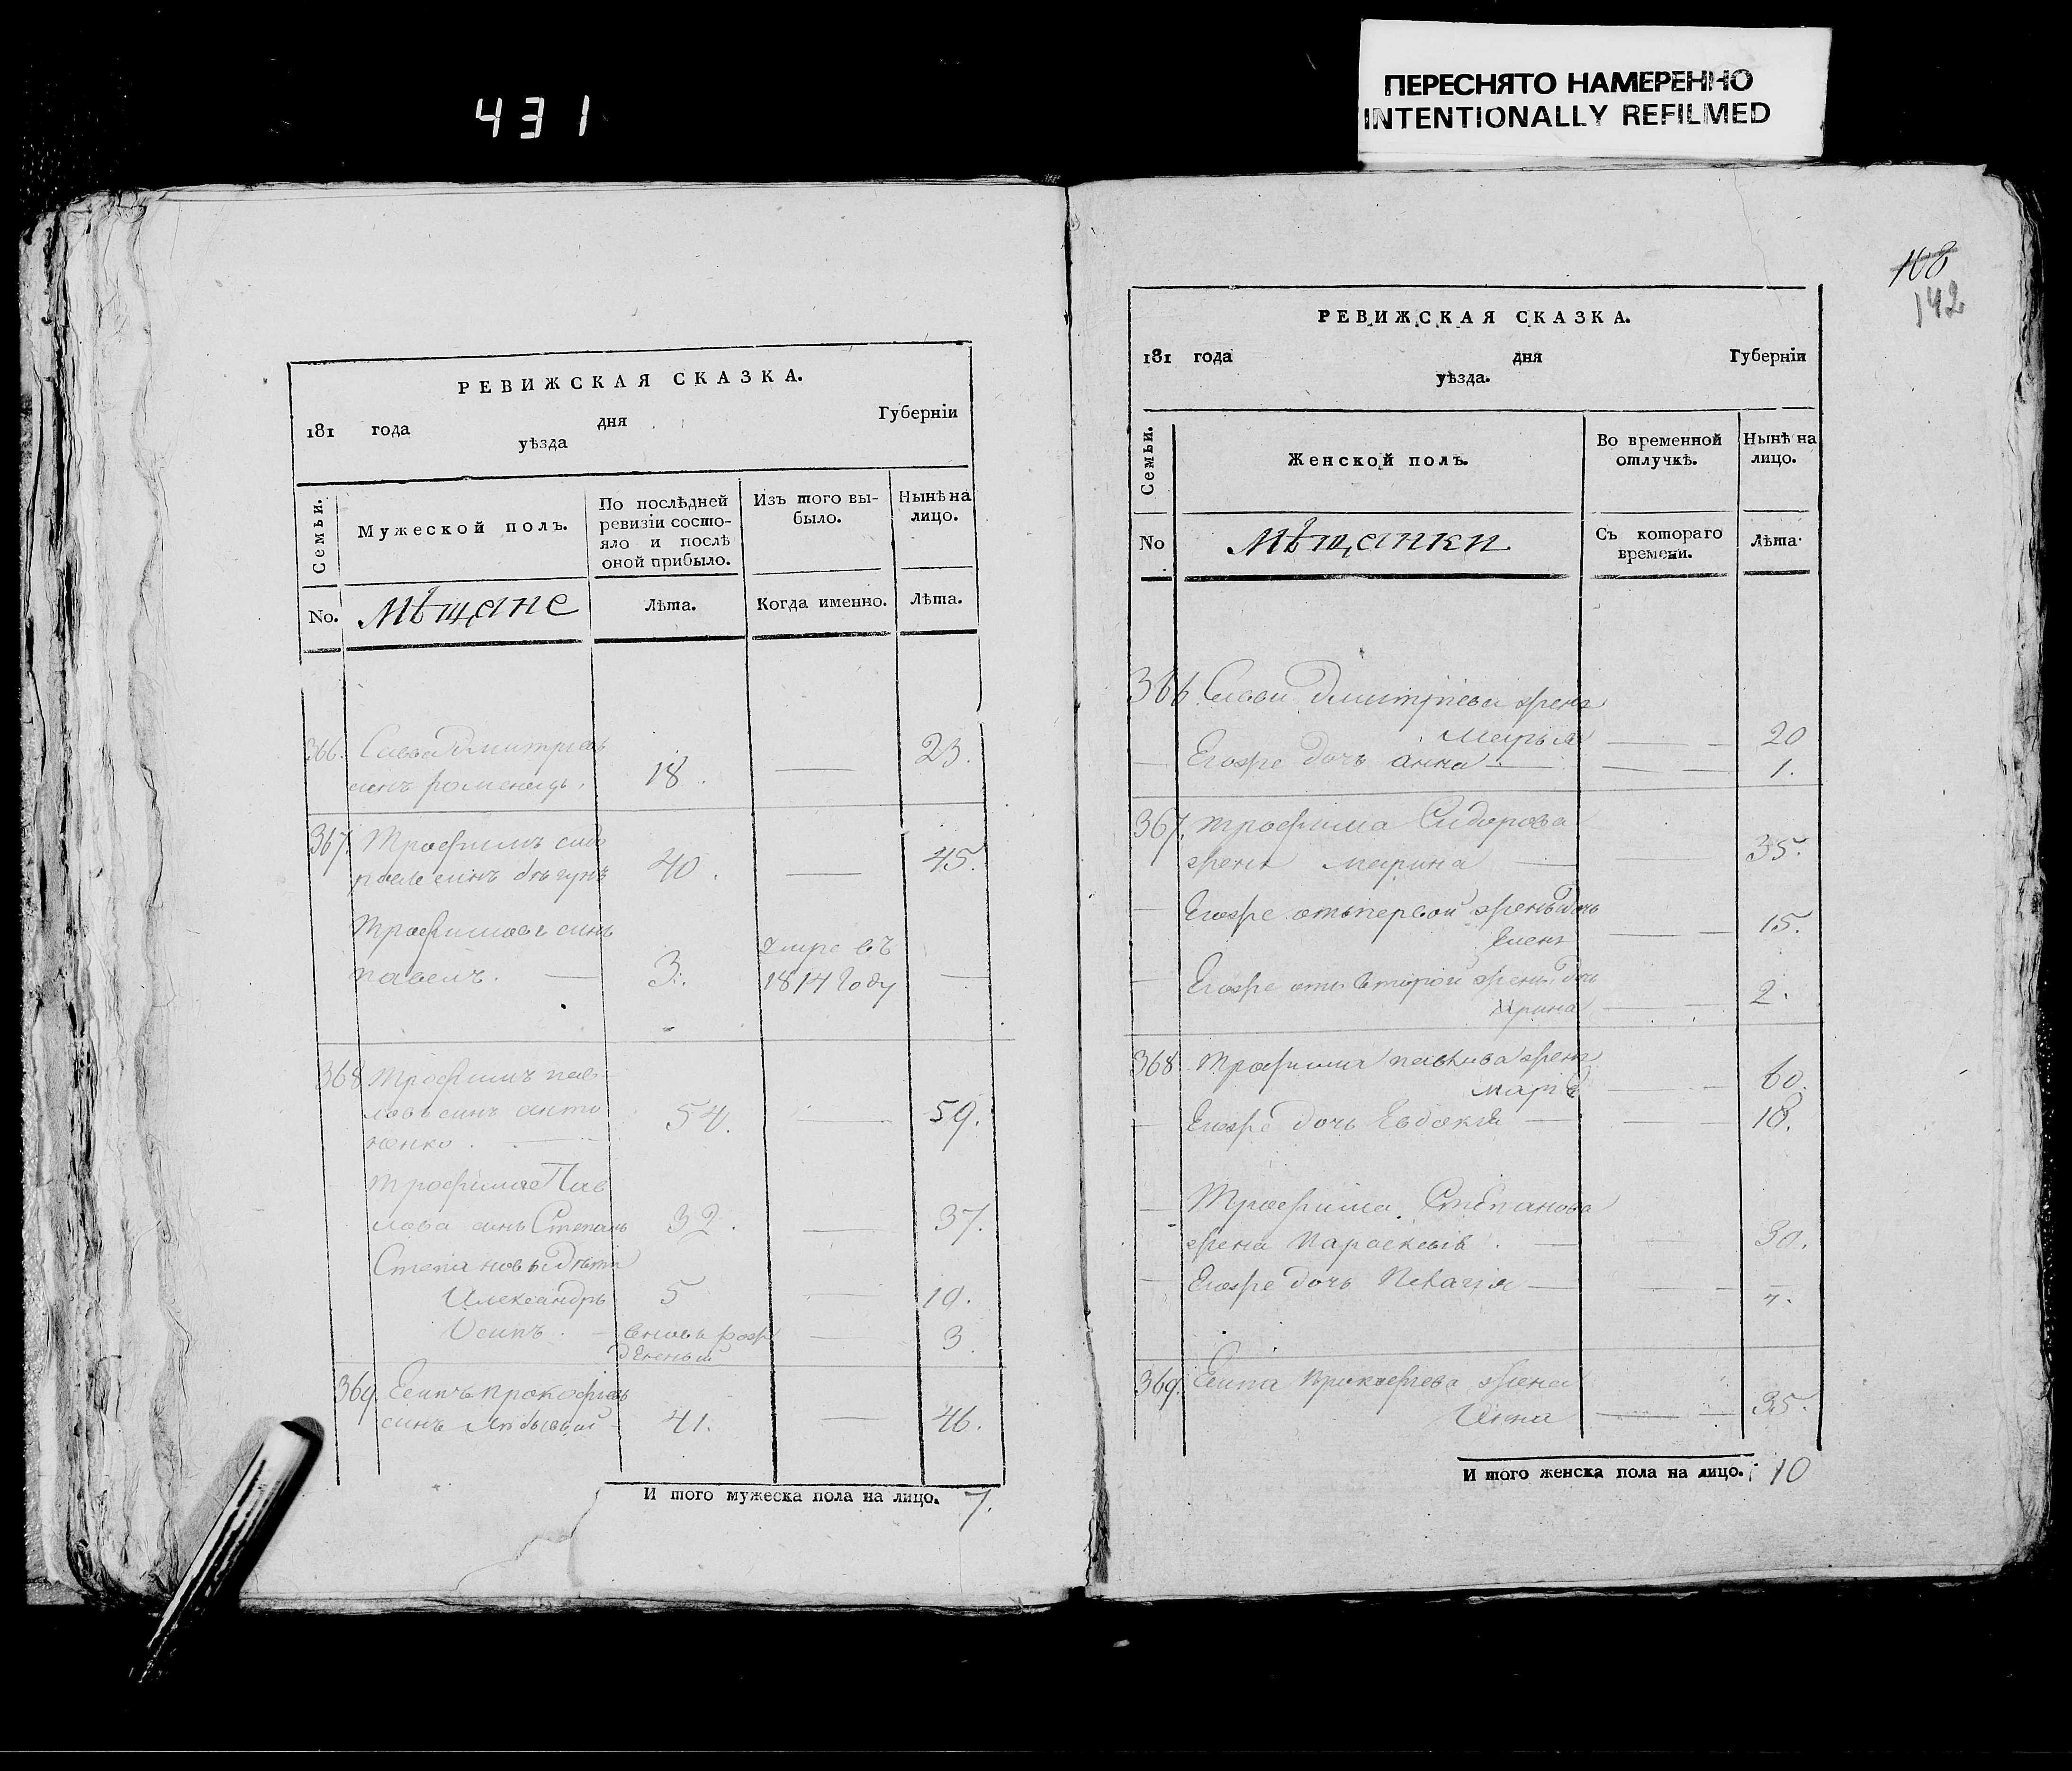 431
ПЕРЕСНЯТО НАМЕРЕННО
INTENTIONALLY REFILMED
РЕВИЖСКАЯ СКАЗКА.
181 года дня Губерніи
уѣзда
Семьи.
Мужеской полъ.
По послѣдней ревизіи состо-
яло и послѣ оной прибыло.
Изъ того вы-
было.
Нынѣ на лицо.
No.
мѣщане
Лѣта.
Когда именно.
Лѣта.
366. Савва Дмитріевъ
синъ роменецъ. 18. 23.
367. Трофимъ сидо
синъ бѣгунъ 40. 45.
Трофимовъ синъ
павелъ. 3. умре въ 1814 году
368 Трофимъ пав
ловъ синъ анто
ненко. 54. 59.
трофима Пав
лова синъ Степанъ 32. 37.
Степановы дѣти
Александръ 5 10.
Осипъ. вновь рож
денный 3
369. Есипъ прокофіевъ
синъ 41. 46.
И того мужеска пола на лицо. 7.
168
142
РЕВИЖСКАЯ СКАЗКА.
181 года дня Губерніи
уѣзда.
Семьи.
Женской полъ.
Во временной отлучкѣ.
Нынѣ на лицо.
No
мѣщанки
Съ котораго времени.
Лѣта.
366. Савви Дмитріева жена
Марья 20
Егоже дочь анна 1.
367. трофима Сидорова
жена марина 35.
Егоже отъ первой жены дочь
Елена 15.
Егоже отъ второй жены дочь
Ирина 2.
368. трофима павлова жена
марія 60.
Егоже дочь Евдокия 18.
Трофима Степанова
жена Параскевія 30.
Егоже дочь Пелагія 7.
369. Есипа прокофіева жена
Анна 35.
И того женска пола на лицо. 10